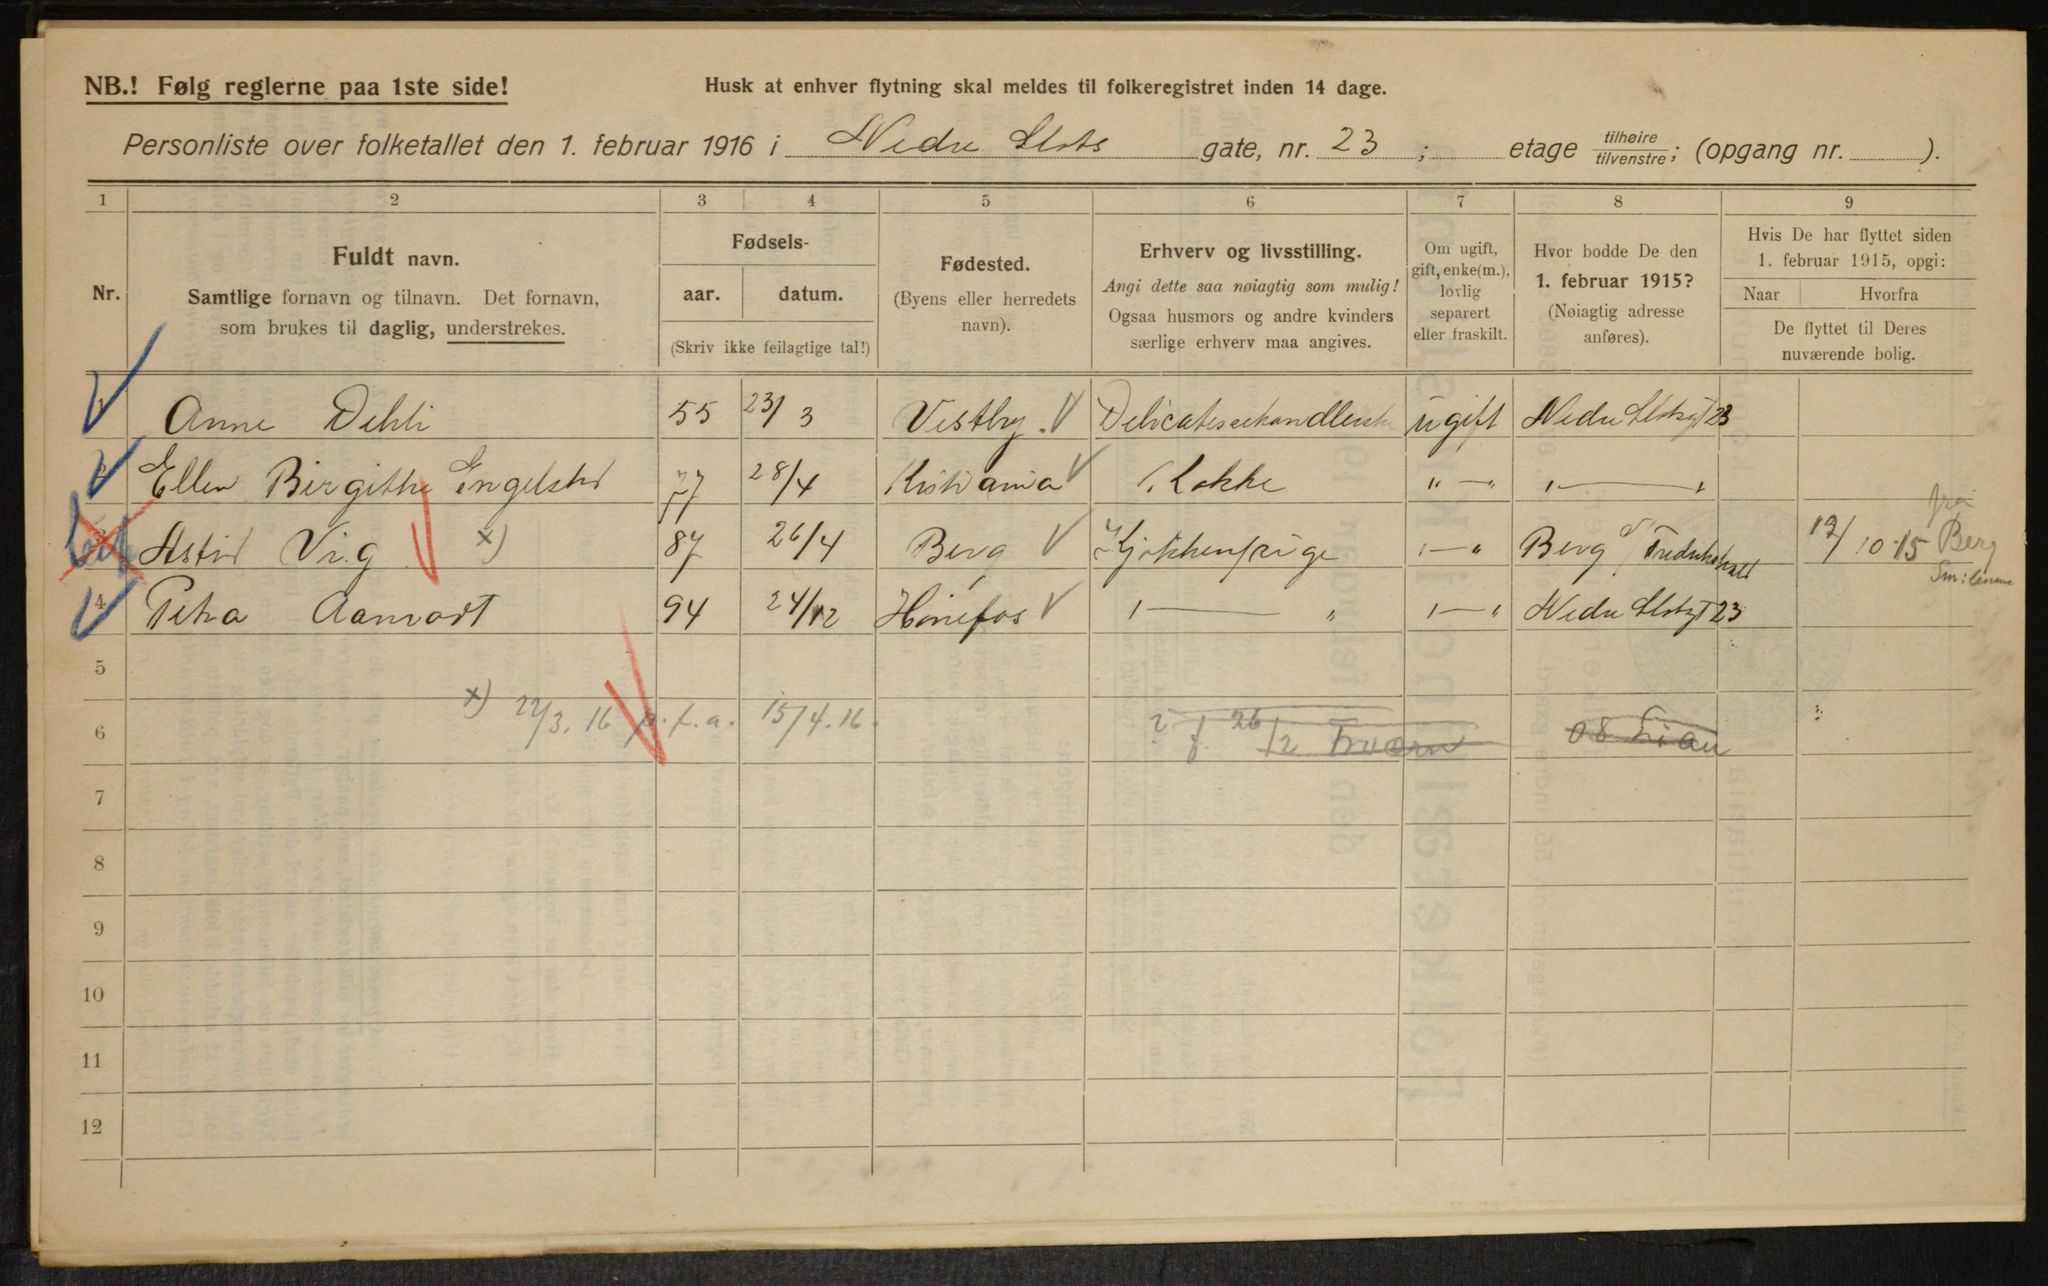 NB.! Følg reglerne paa 1ste side!
Husk at enhver flytning skal meldes til folkeregistret inden 14 dage.
Personliste over folketallet den 1. februar 1916 i Nedre Slots gate, nr. 23 ; etage tilhøire tilvenstre; (opgang nr. ).
1 2 3 4 5 6 7 8 9
Nr.
Fuldt navn.
Samtlige fornavn og tilnavn. Det fornavn,
som brukes til daglig, understrekes.
Fødsels-
aar. datum.
(Skriv ikke feilagtige tal!)
Fødested.
(Byens eller herredets
navn).
Erhverv og livsstilling.
Angi dette saa nøiagtig som mulig!
Ogsaa husmors og andre kvinders
særlige erhverv maa angives.
Om ugift,
gift, enke(m.),
lovlig
separert
eller fraskilt.
Hvor bodde De den
1. februar 1915?
(Nøiagtig adresse
anføres).
Hvis De har flyttet siden
1. februar 1915, opgi:
Naar Hvorfra
De flyttet til Deres
nuværende bolig.
1 Anne Dehli 55 23/3 Vestby Delicatessehandlerske ugift Nedre Slotsgt 23
2 Ellen Birgithe Engelstad 77 28/4 Kristiania Kokke " — " " — "
3 Astrid Vig x) 87 26/4 Berg Kjøkkenpige " — " Berg Fredrikshald 12/10-15 fra Berg
Smålenene
4 Petra Aamodt 94 24/12 Hønefos " — " " — " Nedre Slotsgt 23
5
6 x) 22/3. 16 p. f. a. 15/4. 16. f. 26/2
7
8
9
10
11
12